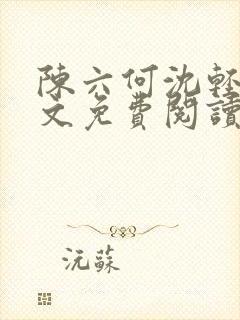 陳六何沈輕
文免費閱讀
沅蘇